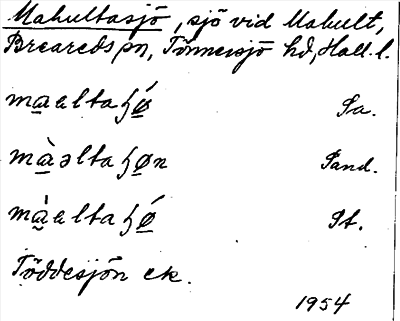 Mahultasjö, sjö vid Mahult,
Breareds sn, Tönnersjö hd, Hall. l.
maaltaɧö́ Sa.
màəltaɧøn Sand.
màaltaɧǿ St.
Töddesjön ek.
1954